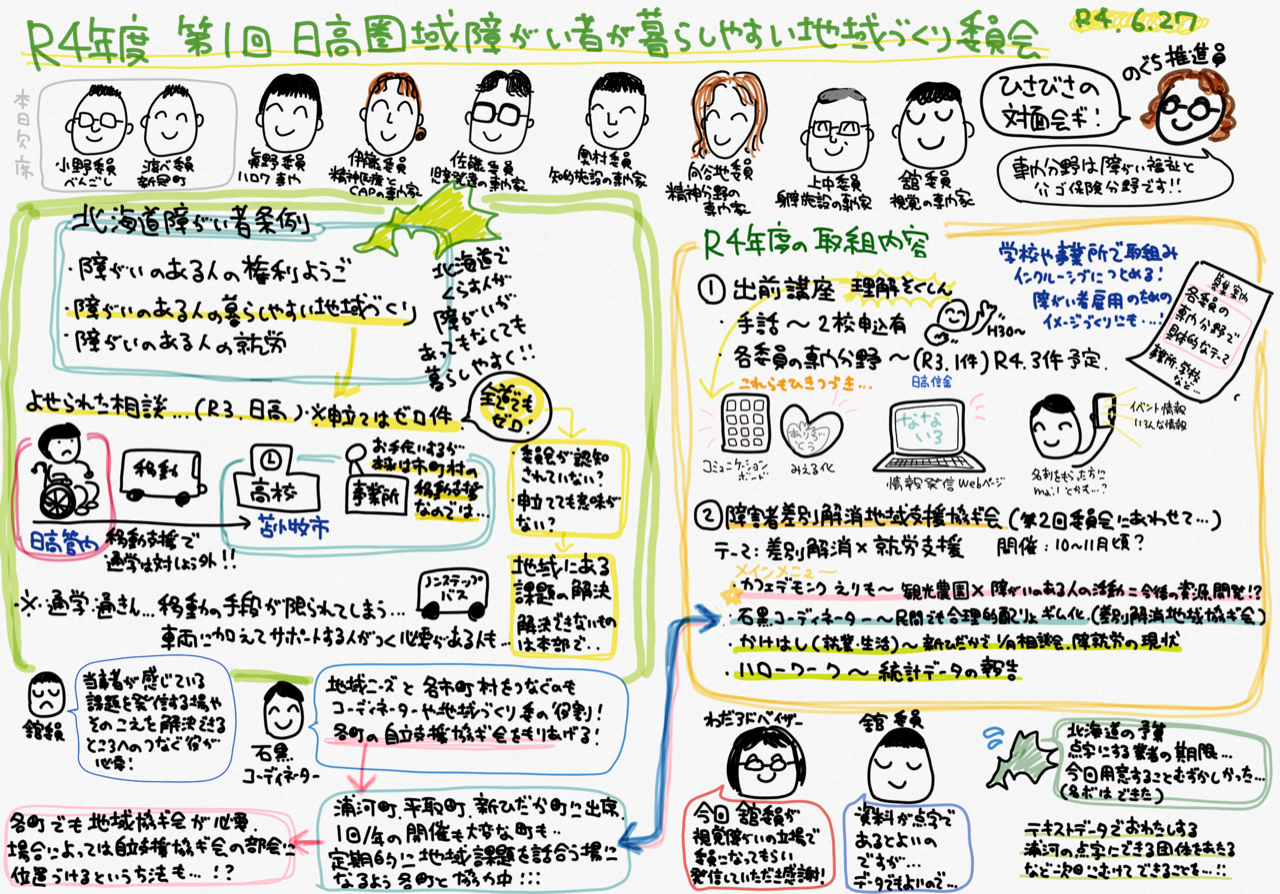 R4年度 第1回 日高圏域障がい者が暮らしやすい地域づくり委員会
R4.6.27
本日欠席
小野委員
べんごし
渡べ委員
新冠町
眞野委員
ハロワ 専門
伊藤委員
精神医療と
CAPの専門家
佐藤委員
児童発達の専門家
奥村委員
知的施設の専門家
向谷地委員
精神分野の
専門家
上中委員
身障施設の専門家
舘委員
視覚の専門家
ひさびさの
対面会ギ!
のぐち推進員
専門分野は障がい福祉と
介ゴ保険分野です!!
北海道障がい者条例
・障がいのある人の権利ようご
・障がいのある人の暮らしやすい地域づくり
・障がいのある人の就労
北海道で
くらす人が
障がいが
あってもなくても
暮らしやすく!!
よせられた相談…(R3.日高)・※申立てはゼロ件
全道でも
ゼロ!
日高管内
移動
高校
苫小牧市
事業所
お手伝いするが
本来は市町村の
移動支援
なのでは…
移動支援で
通学は対しょう外!!
・委員会が認知
されていない?
・申立てても意味が
ない?
地域にある
課題の解決
解決できないもの
は本部で…
・※・通学.通きん…移動の手段が限られてしまう…
車両に加えてサポートする人がつく必要がある人も…
ノンステップ
バス
舘委員
当事者が感じている
課題を発信する場や
そのこえを解決できる
ところへのつなぐ役が
必要!
石黒
コーディネーター
地域ニーズと各市町村をつなぐのも
コーディネーターや地域づくり委の役割!
各町の自立支援協ギ会をもりあげる!
各町でも地域協ギ会が必要.
場合によっては自立支援協ギ会の部会に
位置づけるという方法も…!?
浦河町.平取町.新ひだか町に出席.
1回/年の開催も大変な町も…
定期的に地域課題を話合う場に
なるよう各町と協力中!!!
R4年度の取組内容
① 出前講座 理解そくしん
・手話〜2校申込有
H30〜
・各委員の専門分野〜(R3.1件)R4.3件予定.
これらもひきつづき…
日高信金
学校や事業所で取組み
インクルーシブにつとめる!
障がい者雇用のための
イメージづくりにも…!
募集案内
各委員の
専門分野で
具体的なテーマ
事業所.学校
など…
コミュニケーション
ボード
ありがとう
みえる化
なないろ
情報発信Webページ
イベント情報
いろんな情報
名刺をもらった方に
mailとかも…?
② 障害者差別解消地域支援協ギ会(第2回委員会にあわせて…)
テーマ:差別解消×就労支援 開催:10〜11月頃?
メインメニュー
・カフェデモンク えりも〜観光農園×障がいのある人の活動=今後の資源開発!?
・石黒コーディネーター〜民間でも合理的配りょギム化(差別解消地域協ギ会)
・かけはし(就業・生活)〜新ひだかで1/月相談会.障就労の現状
・ハローワーク〜統計データの報告
わだアドバイザー
今回舘委員が
視覚障がいの立場で
委員になってもらい
発信していただき感謝!
舘委員
資料が点字で
あるとよいの
ですが…
データでもよいので…
北海道の予算
点字にする業者の期限…
今回用意することむずかしかった…
(名ボはできた)
テキストデータでおわたしする
浦河の点字にできる団体をあたる
など次回にむけてできることを…!!